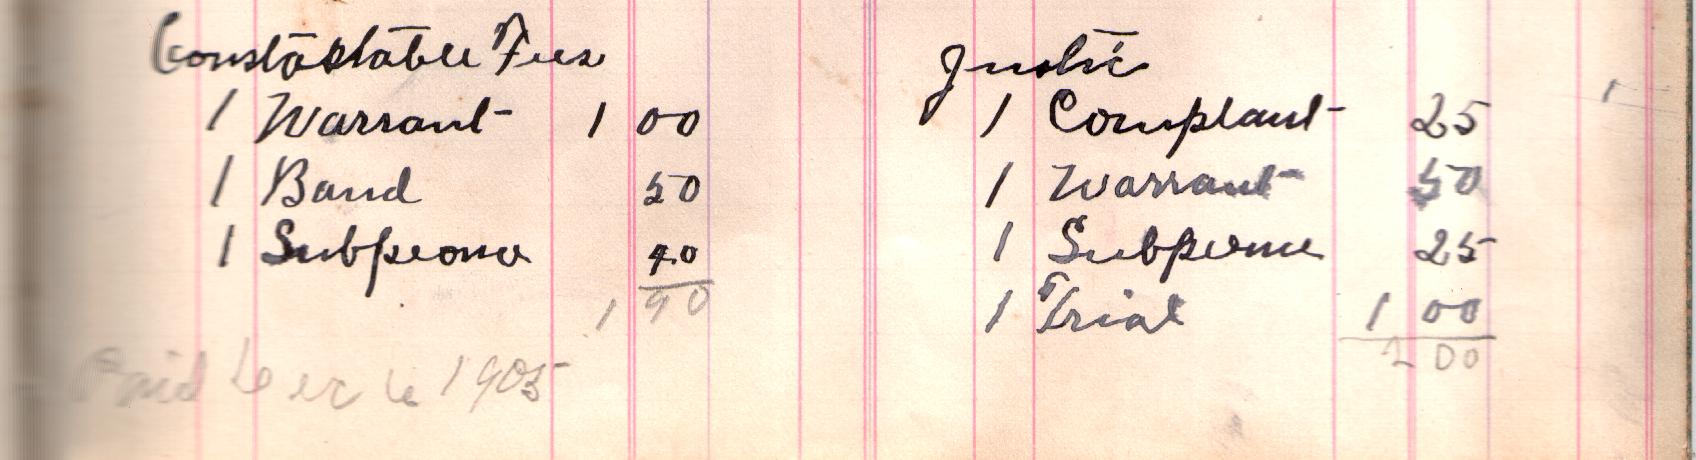 Constastable Fees
1 Warrant 1 00
1 Band 50
1 Subpeona 40
1 90
Paid Dec 6 1905
Justic
1 Complant 25
1 Warrant 50
1 Subpeona 25
1 Trial 1 00
2 00